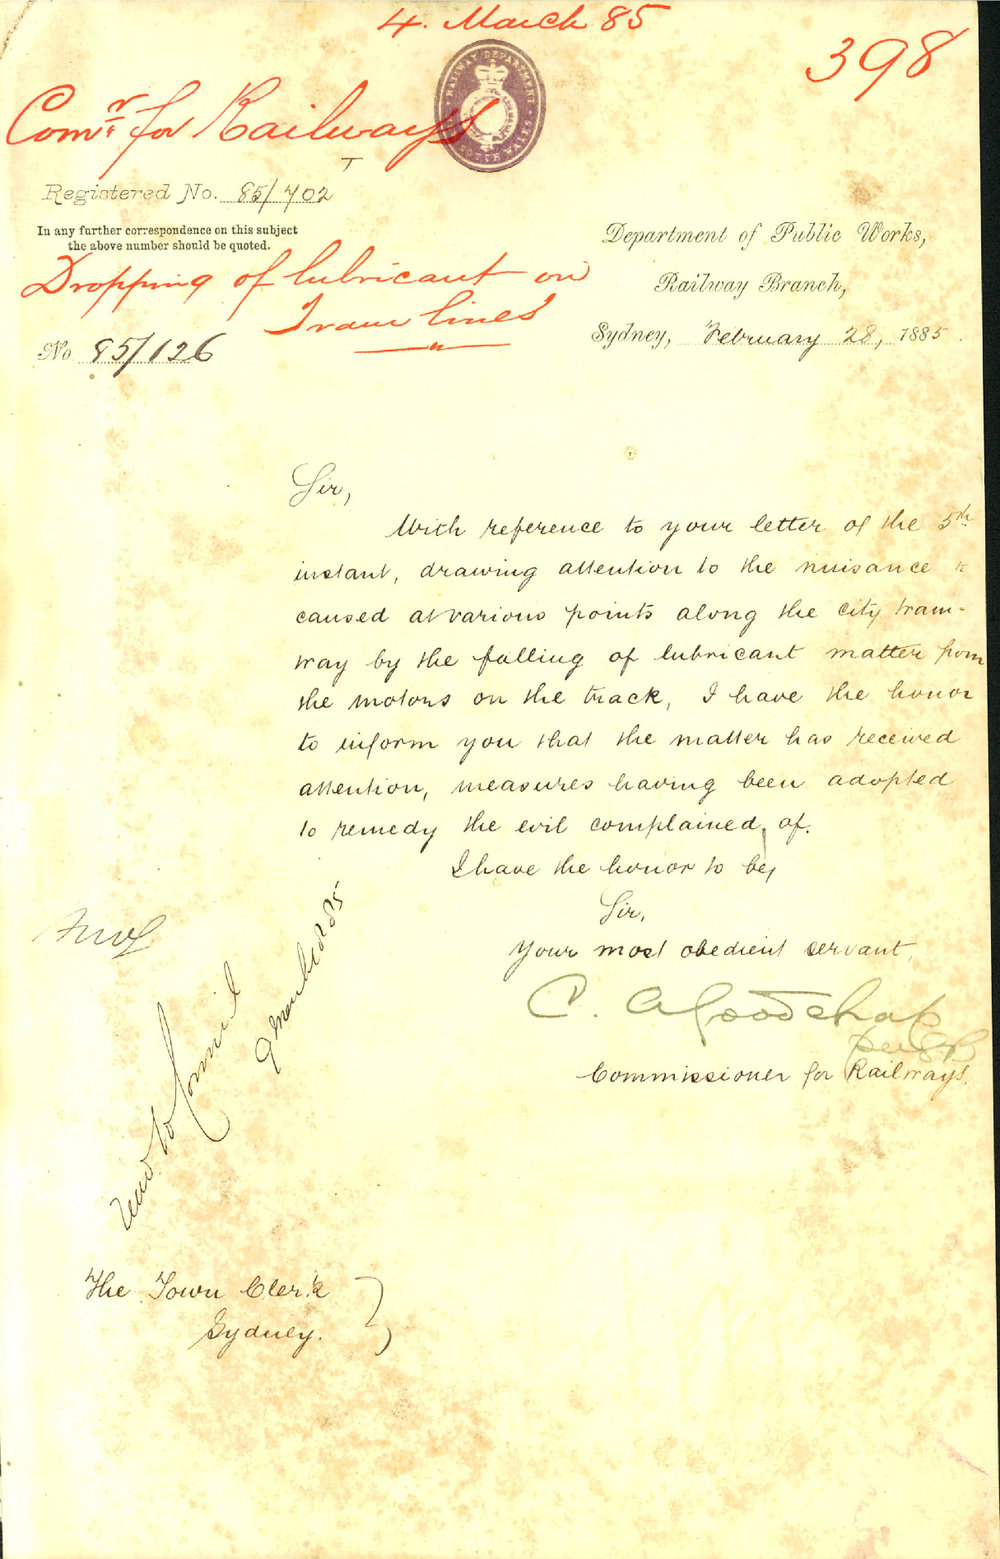 4. March 85
398
Comr. for Railways
RAILWAY DEPARTMENT
SOUTH WALES
T
Registered No. 85/702
In any further correspondence on this subject
the above number should be quoted.
Dropping of lubricant on
Tram lines
No 85/126
Department of Public Works,
Railway Branch,
Sydney, February 28, 1885.
Sir,
With reference to your letter of the 5th
instant, drawing attention to the nuisance
caused at various points along the city tram-
way by the falling of lubricant matter from
the motors on the track, I have the honor
to inform you that the matter has received
attention, measures having been adopted
to remedy the evil complained of.
I have the honor to be,
Sir,
Your most obedient servant,
C. A Goodchap
Commissioner for Railways.
to Council
9 March 1885
The Town Clerk
Sydney.